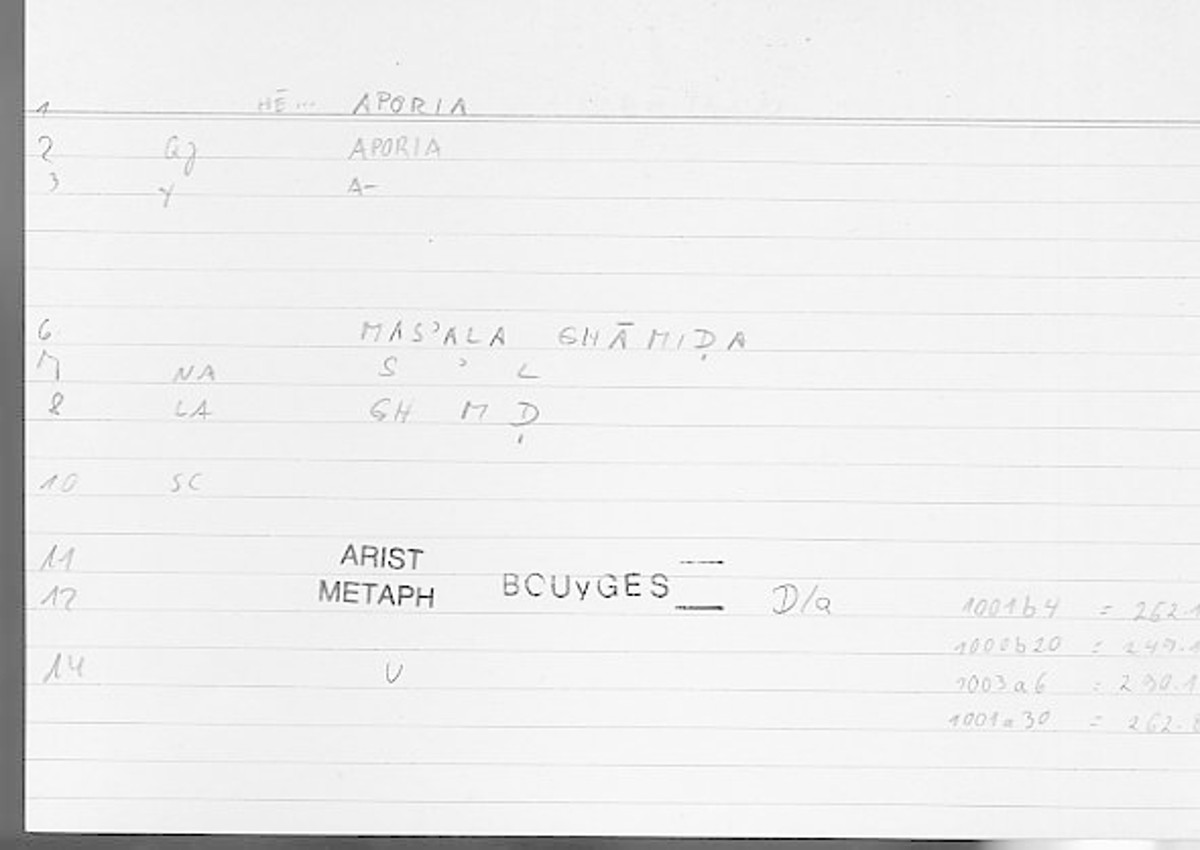 1 HĒ... APORIA
2 GJ APORIA
3 Y A-
6 MAS'ALA GHĀMIḌA
7 NA S ' L
8 LA GH M Ḍ
10 SC
11 ARIST
12 METAPH BOUYGES D/a 1001b4 = 262.1
1000b20 = 249.1
14 U 1003a6 = 290.1
1001a30 = 262.